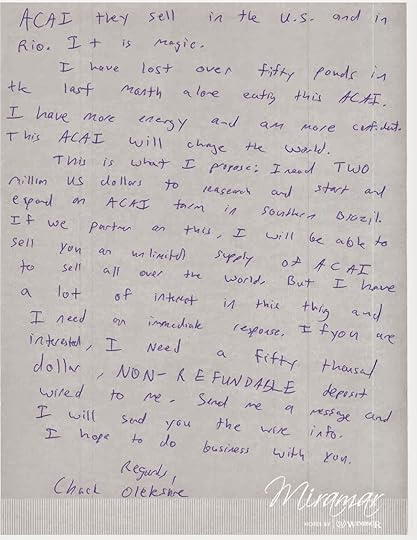 ACAI they sell in the U.S. and in
Rio. It is magic.
I have lost over fifty ponds in
the last month alone eatig this ACAI.
I have more energy and am more confident.
This ACAI will change the world.
This is what I propose: I need TWO
million US dollars to research and start and
expand an ACAI farm in southern Brazil.
If we partner on this, I will be able to
sell you an unlimited supply of ACAI
to sell all over the world. But I have
a lot of interest in this thing and
I need an immediate response. If you are
interested, I need a fifty thousand
dollar, NON-REFUNDABLE deposit
wired to me. Send me a message and
I will send you the wire info.
I hope to do business with you.
Regards,
Chach
Miramar
HOTEL BY WINDSOR